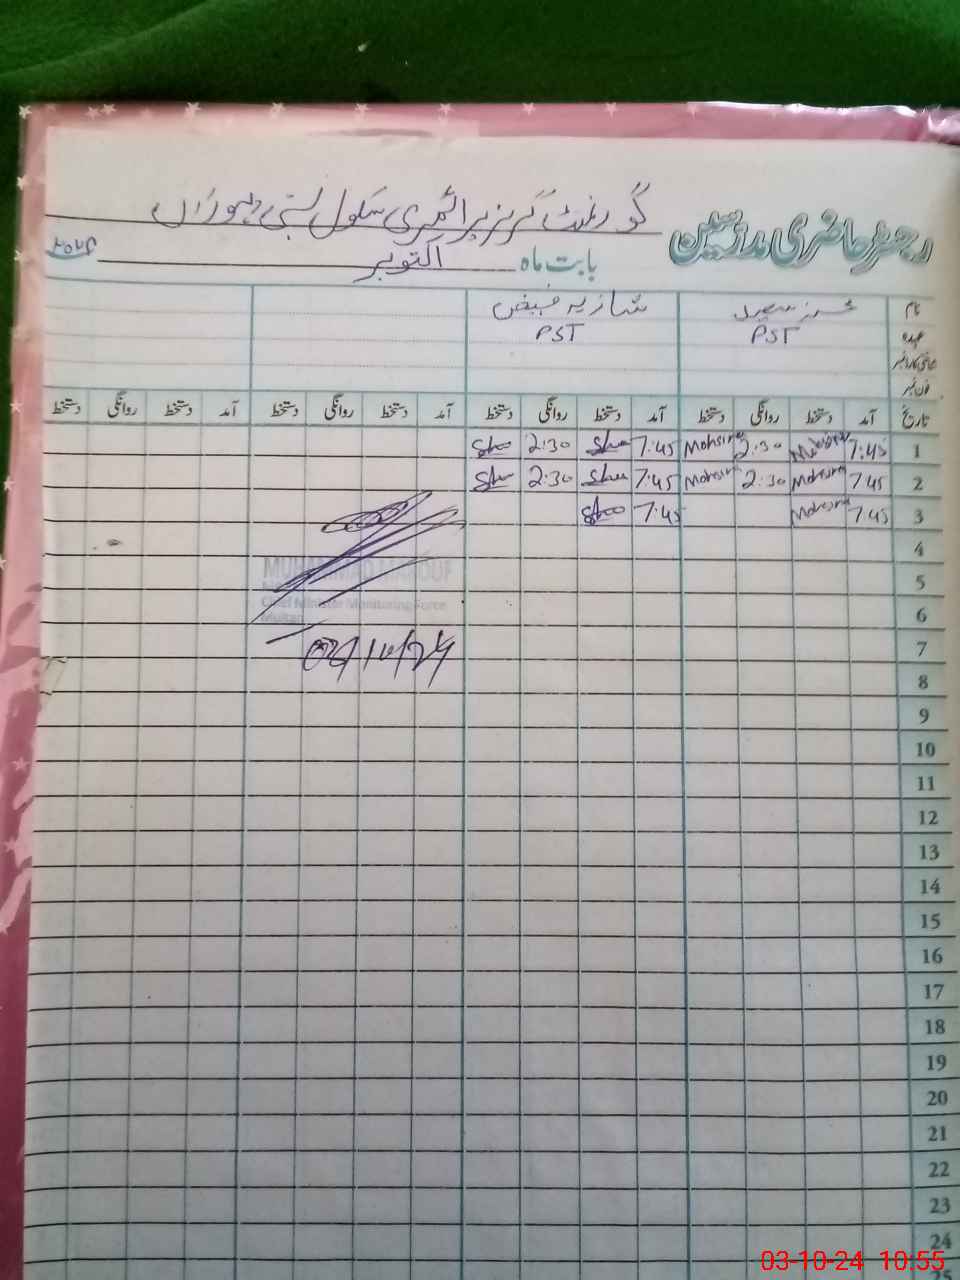 رجسٹر حاضری مدرسین گورنمنٹ گرلز پرائمری سکول بستی
بابت ماہ اکتوبر
نام شازیہ فیض
عہدہ PST PST
فون نمبر
تاریخ آمد دستخط روانگی دستخط آمد دستخط روانگی دستخط آمد دستخط روانگی دستخط آمد دستخط روانگی دستخط
1 7:45 Mohsina 2:30 Mohsina 7:45 2:30
2 7:45 Mohsina 2:30 Mohsina 7:45 2:30
3 7:45 Mohsina 7:45
4
5
MUHAMMAD
Chief Minister Monitoring Force
Multan
6
7
8
9
10
11
12
13
14
15
16
17
18
19
20
21
22
23
24
25
03-10-24 10:55